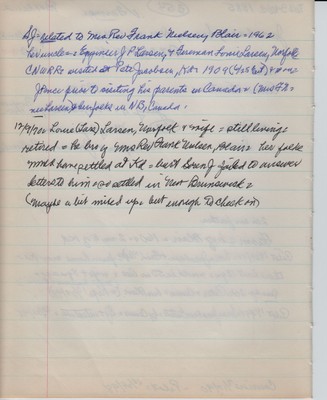 related to Mrs Rev Frank Nielsen, Blair = 1962
her uncle = Engineer J P Larsen, & Foreman Louis Larsen, Norfolk
C NW RR = visited at Pete Jacobsen, Kr. 1909 (
prior to visiting his parents in Canada = (Mrs F N =
nee Larsen & her folks in N.B, Canada.
Louis (Lars) Larsen, Norfolk & wife = still living =
retired = he bro of Mrs Rev Frank Nielsen, Blair = her folks
have settled at = but failed to answer
letters to him = so settled in New Brunswick =
(Maybe a bit mixed up = but enough to check on)